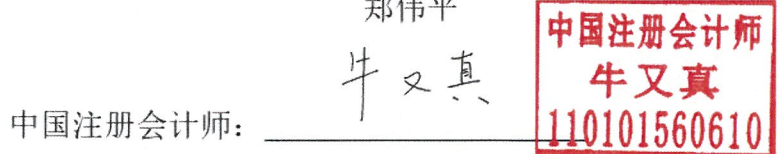 郑伟平
牛又真
中国注册会计师：
中国注册会计师
牛又真
110101560610